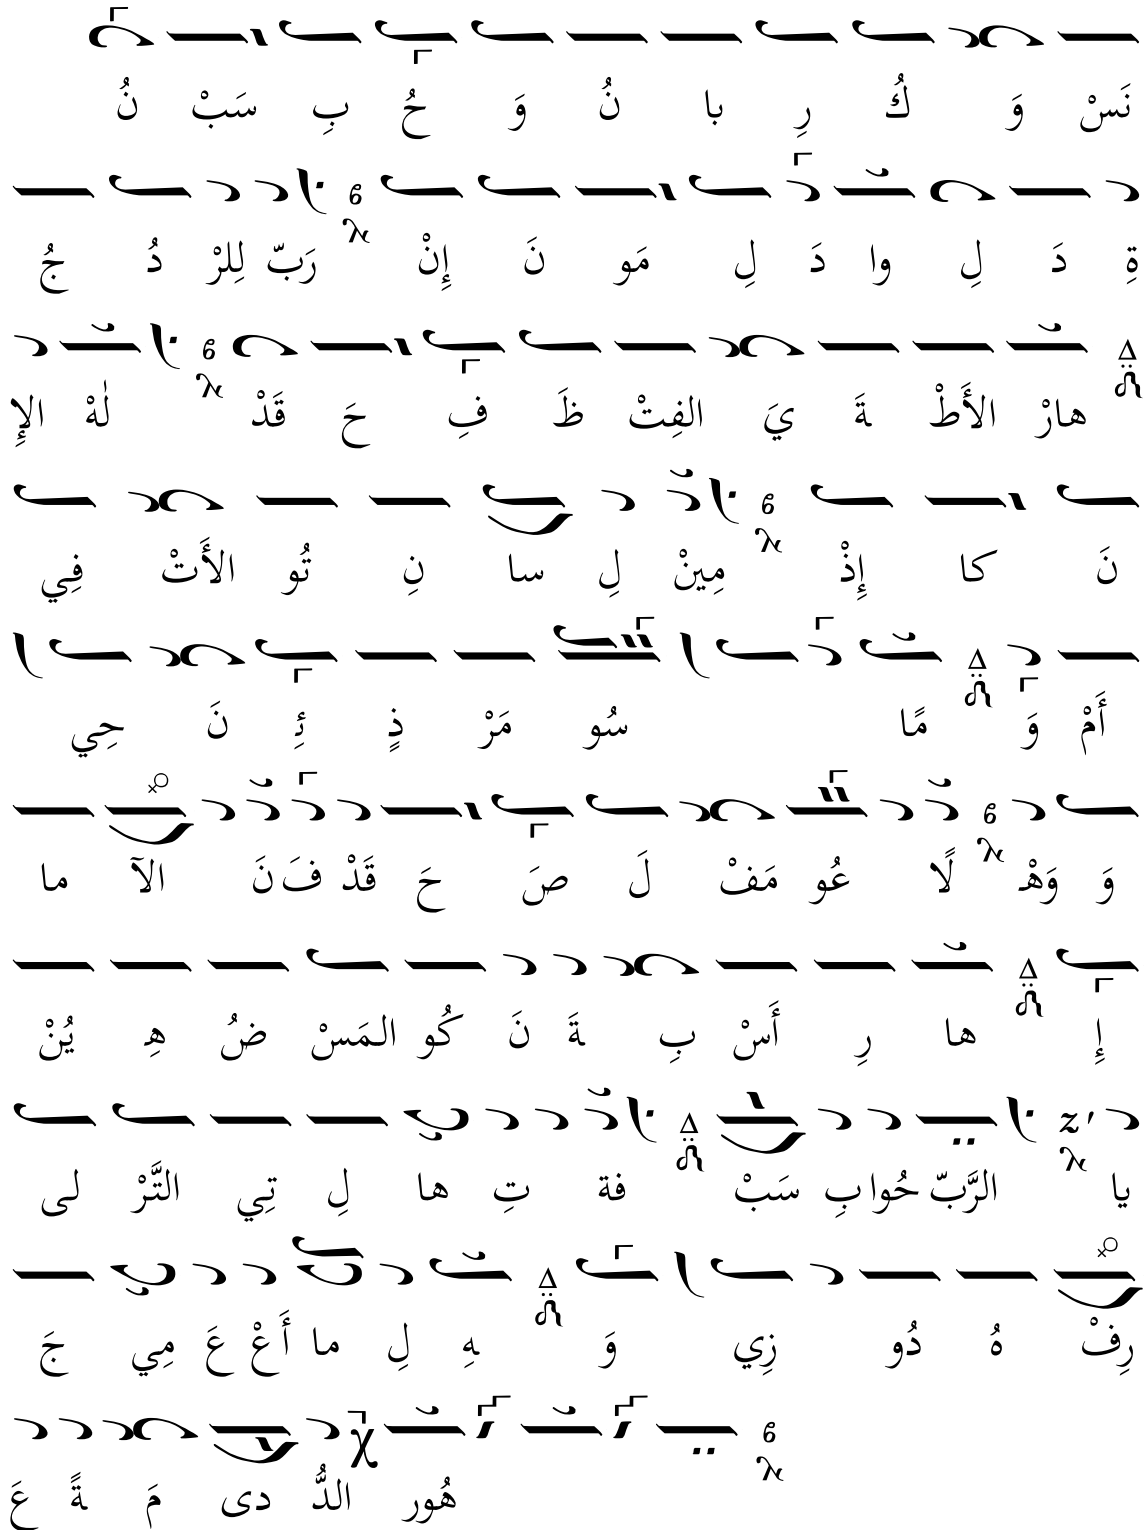 نَسْ وَ كُ رِ با نُ وَ حُ بِ سَبْ نُ
ةِ دَ لِ وا دَ لِ مَو نَ إِنْ رَبّ لِلرْ دُ جُ
هارْ الأَطْ ةَ يَ الفِتْ ظَ فِ حَ قَدْ لٰهْ الإِ
نَ كا إِذْ مِينْ لِ سا نِ تُو الأَتْ فِي
أَمْ وَ مًا سُو مَرْ ذٍ ئِ نَ حِي
وَ وَهْ لًا عُو مَفْ لَ صَ حَ قَدْ فَ نَ الآ ما
إِ ها رِ أَسْ بِ ةَ نَ كُو المَسْ ضُ هِ يُنْ
يا الرَّبّ حُوا بِ سَبْ فة تِ ها لِ تِي التَّرْ لى
رِفْ هُ دُو زِي وَ هِ لِ ما أَعْ عَ مِي جَ
هُور الدُّ دى مَ ةً عَ